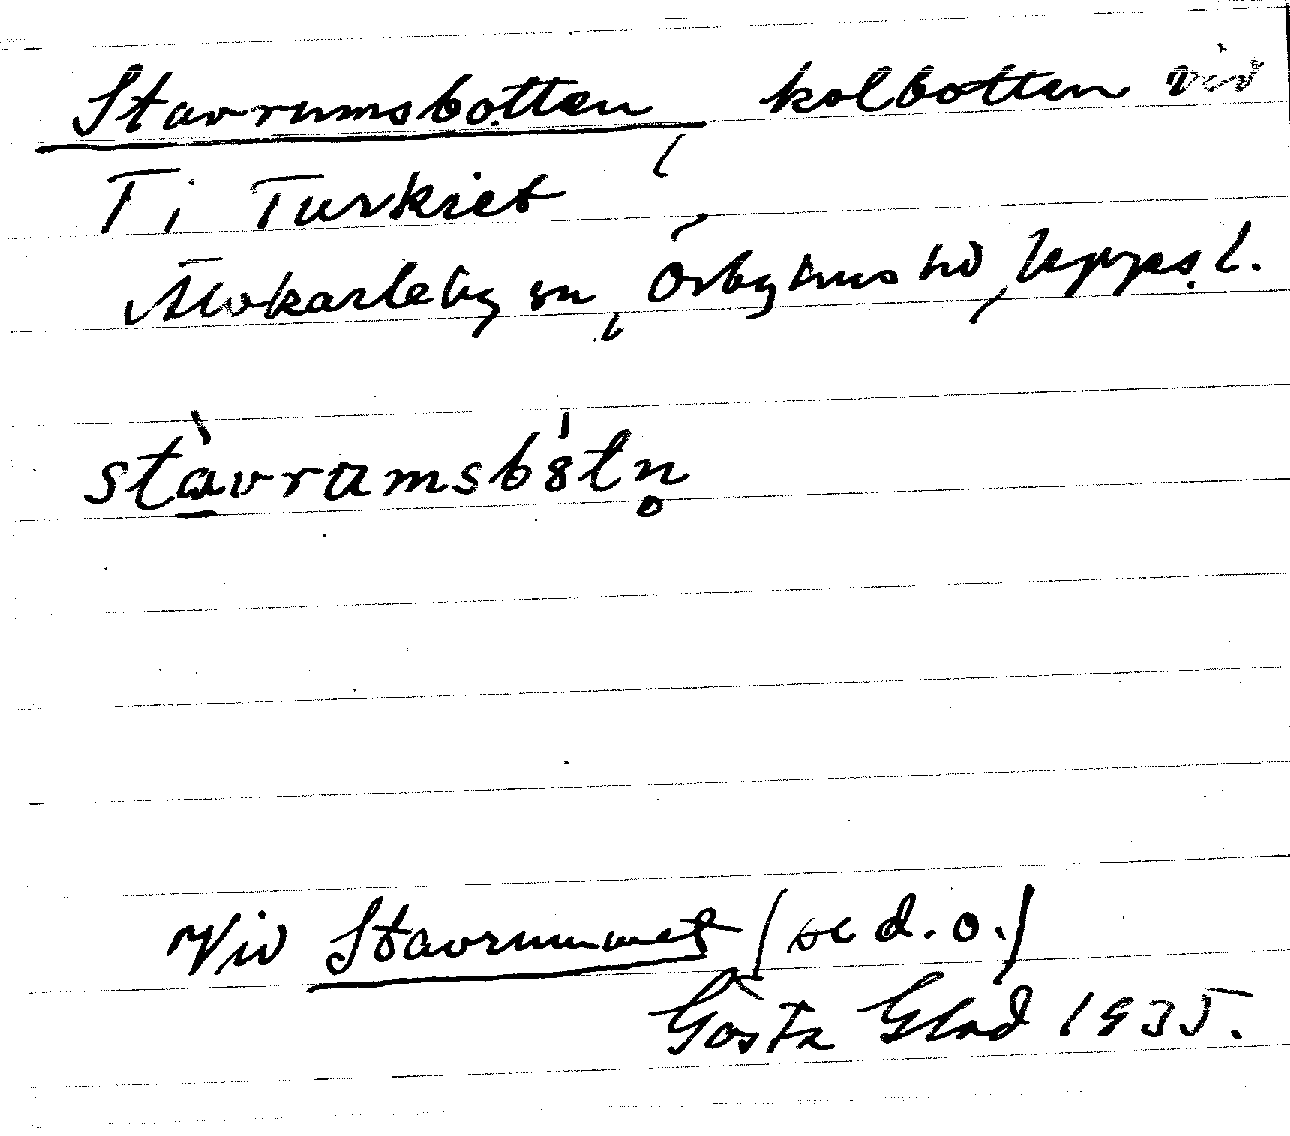 Stavrumsbotten, kolbotten vid
T i Turkiet
Älvkarleby sn, Örbyhus hd, Upps. l.
stàvrumsbótn̥
Vid Stavrummet (se d. o.)
Gösta Glad 1935.